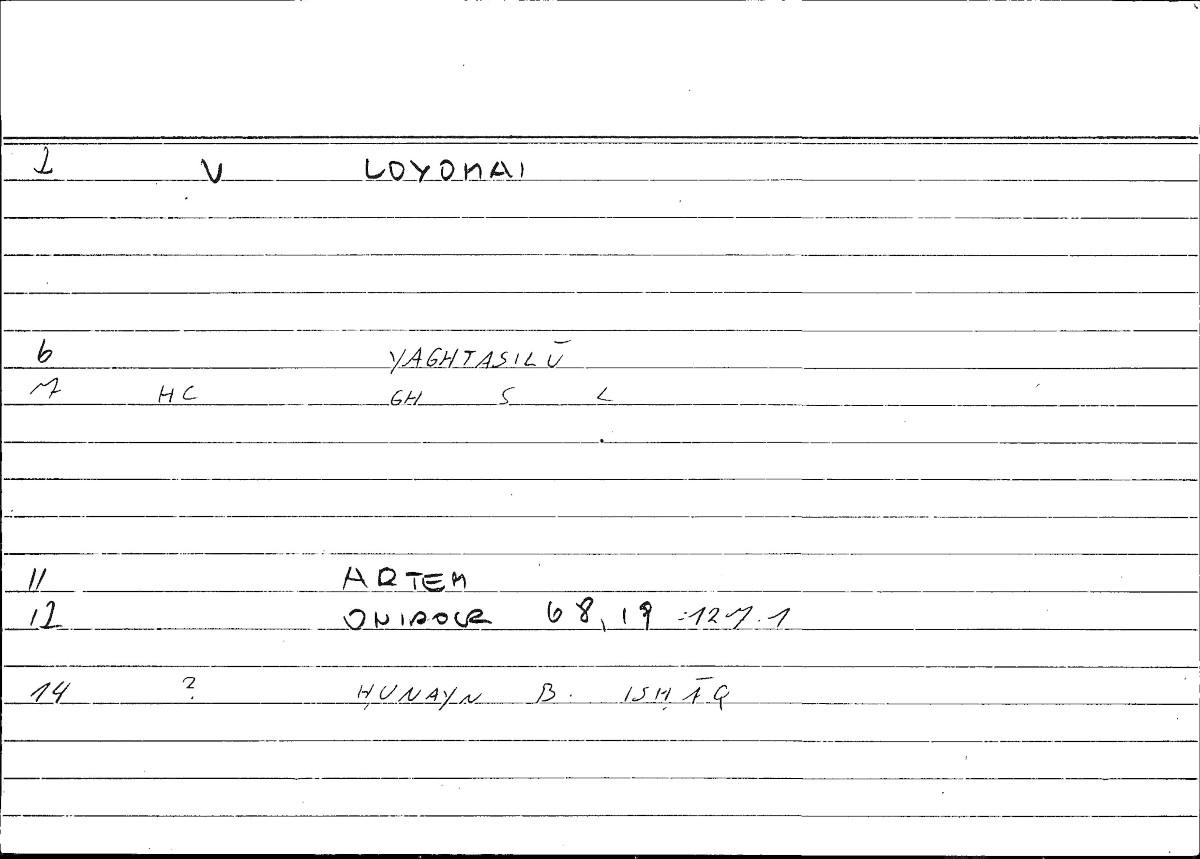 1 V LOYOMAI
6 YAGHTASILŪ
7 HC GH S L
11 ARTEM
12 ONIROCR 68,19 :127.1
14 ? ḤUNAYN B. ISḤĀQ